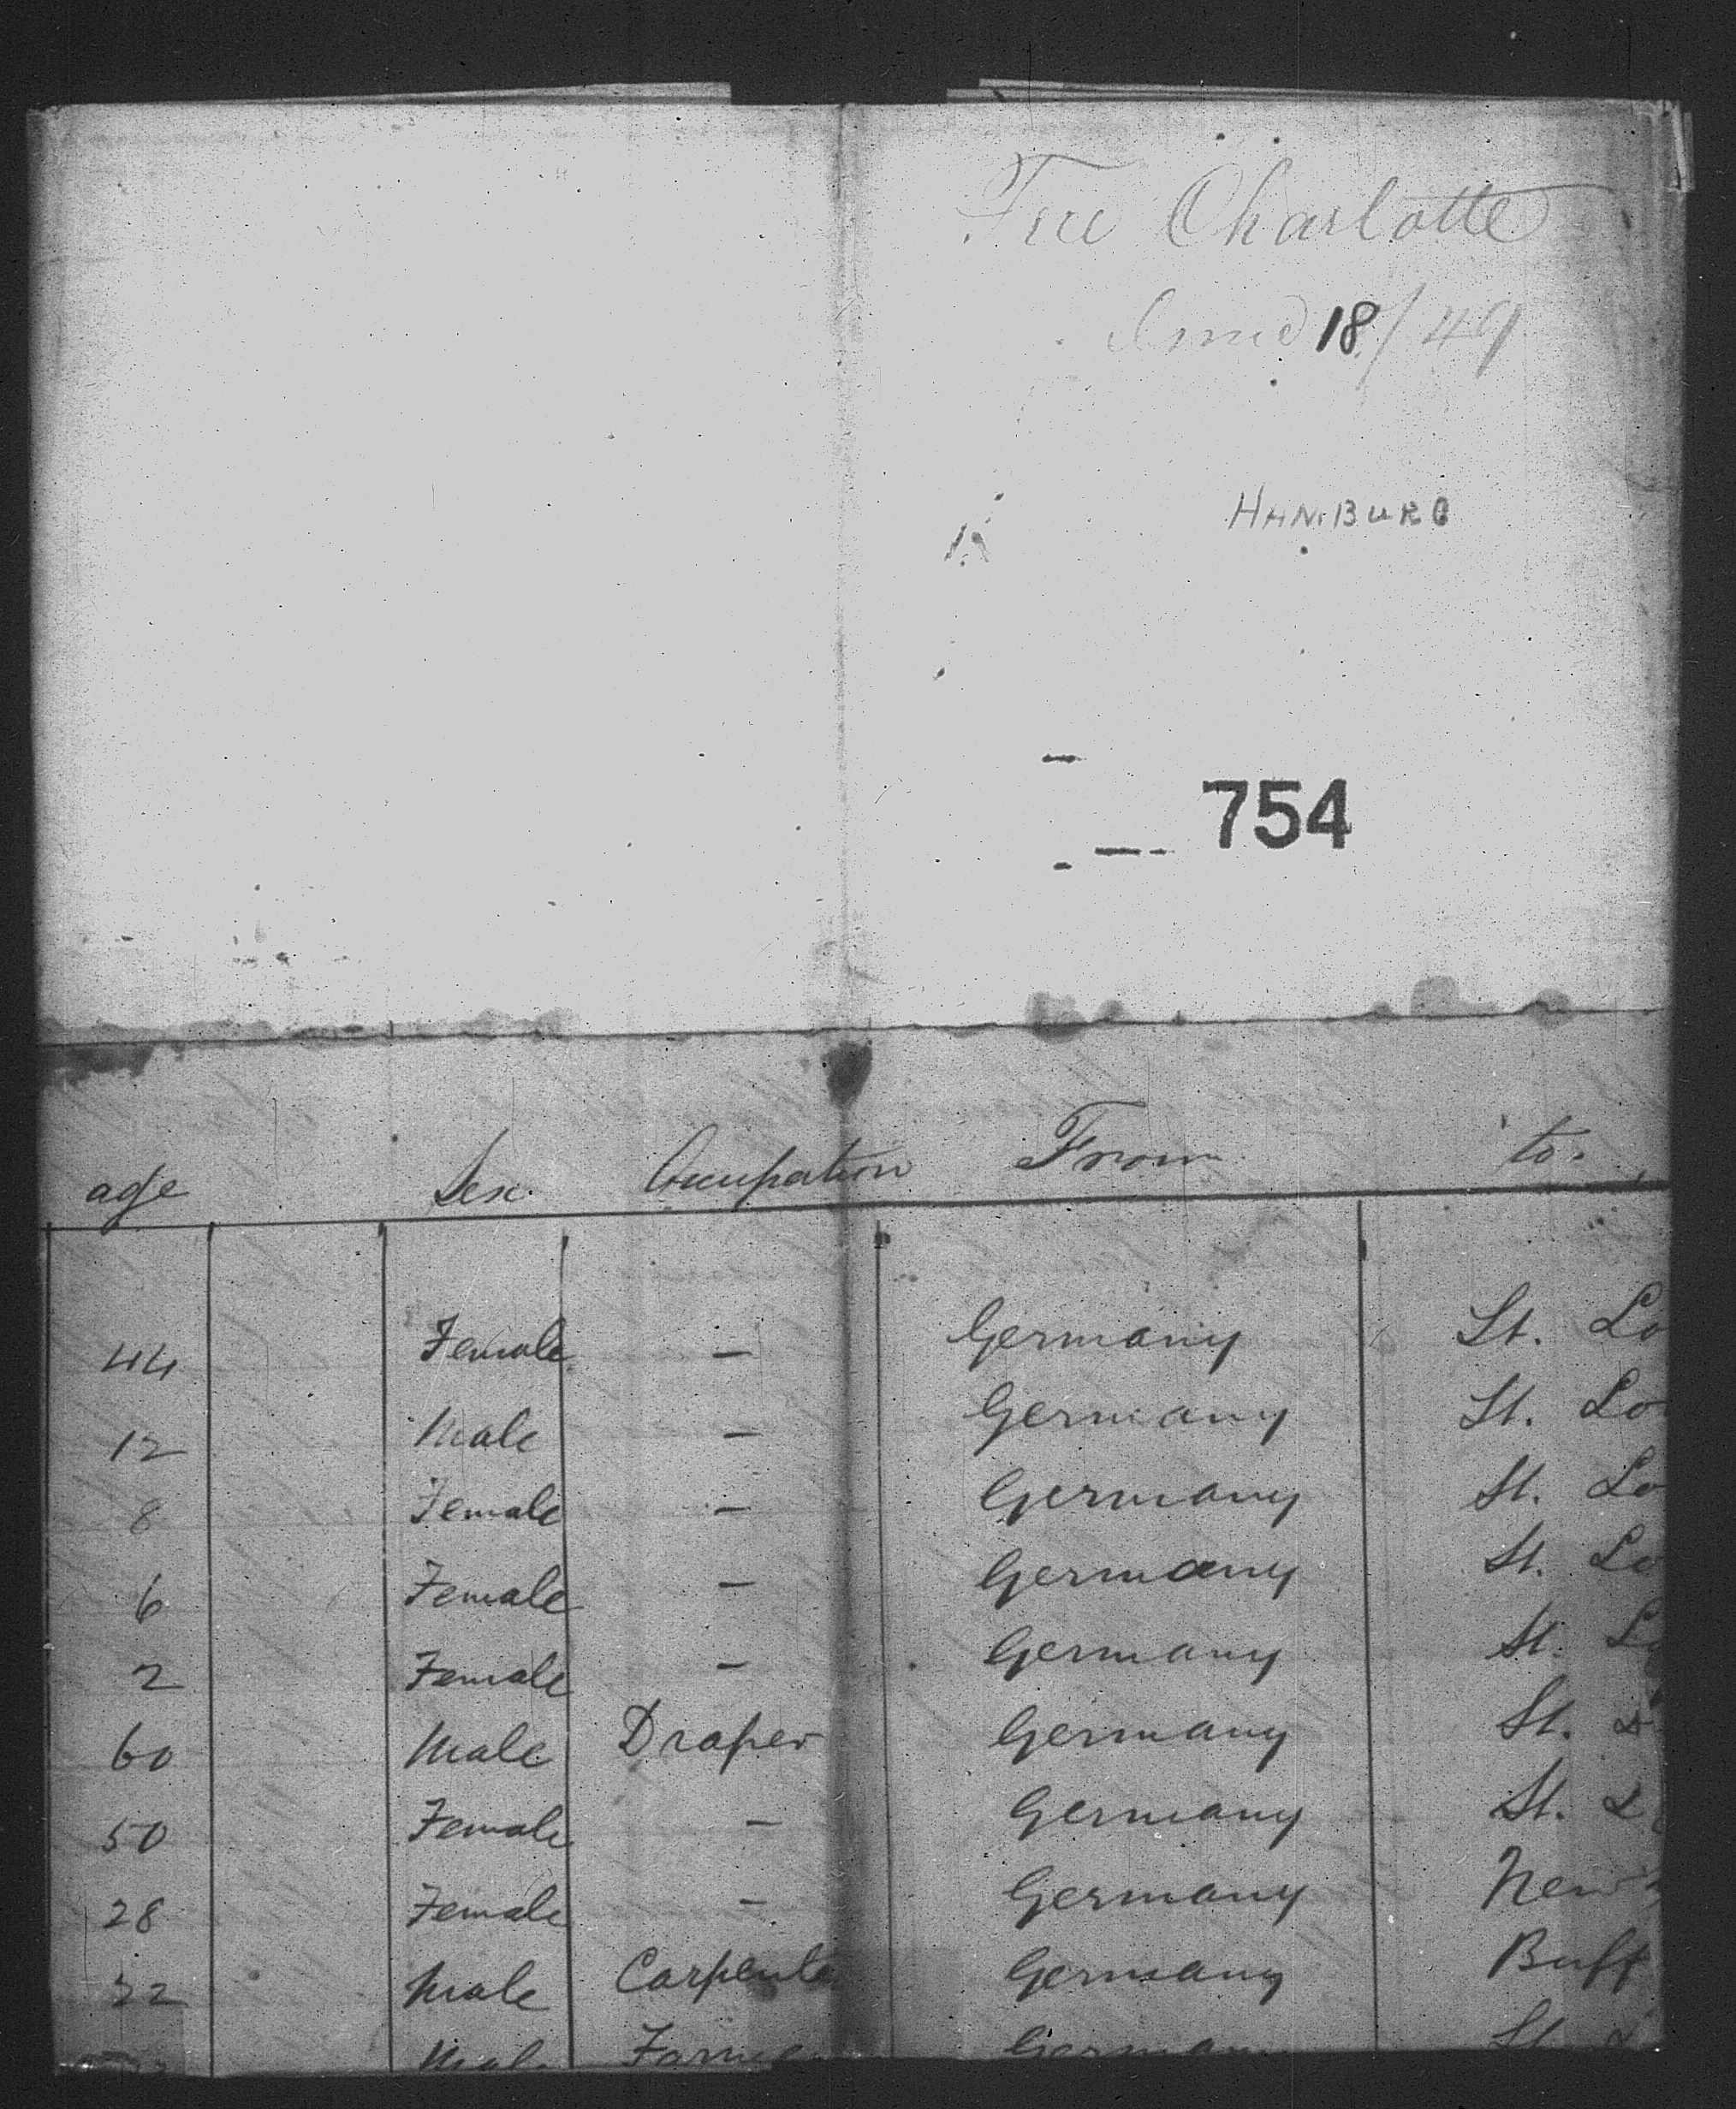 Charlotte
June 18/49
HAMBURG
754
age Sex Occupation From to.
44 Female - Germany St. Lo
12 Male - Germany St. Lo
8 Female - Germany St. Lo
6 Female - Germany St. Lo
2 Female - Germany St. Lo
60 Male Draper Germany St. L
50 Female - Germany St. L
28 Female - Germany New
22 Male Carpente Germany Buff
Male Farme German St. L